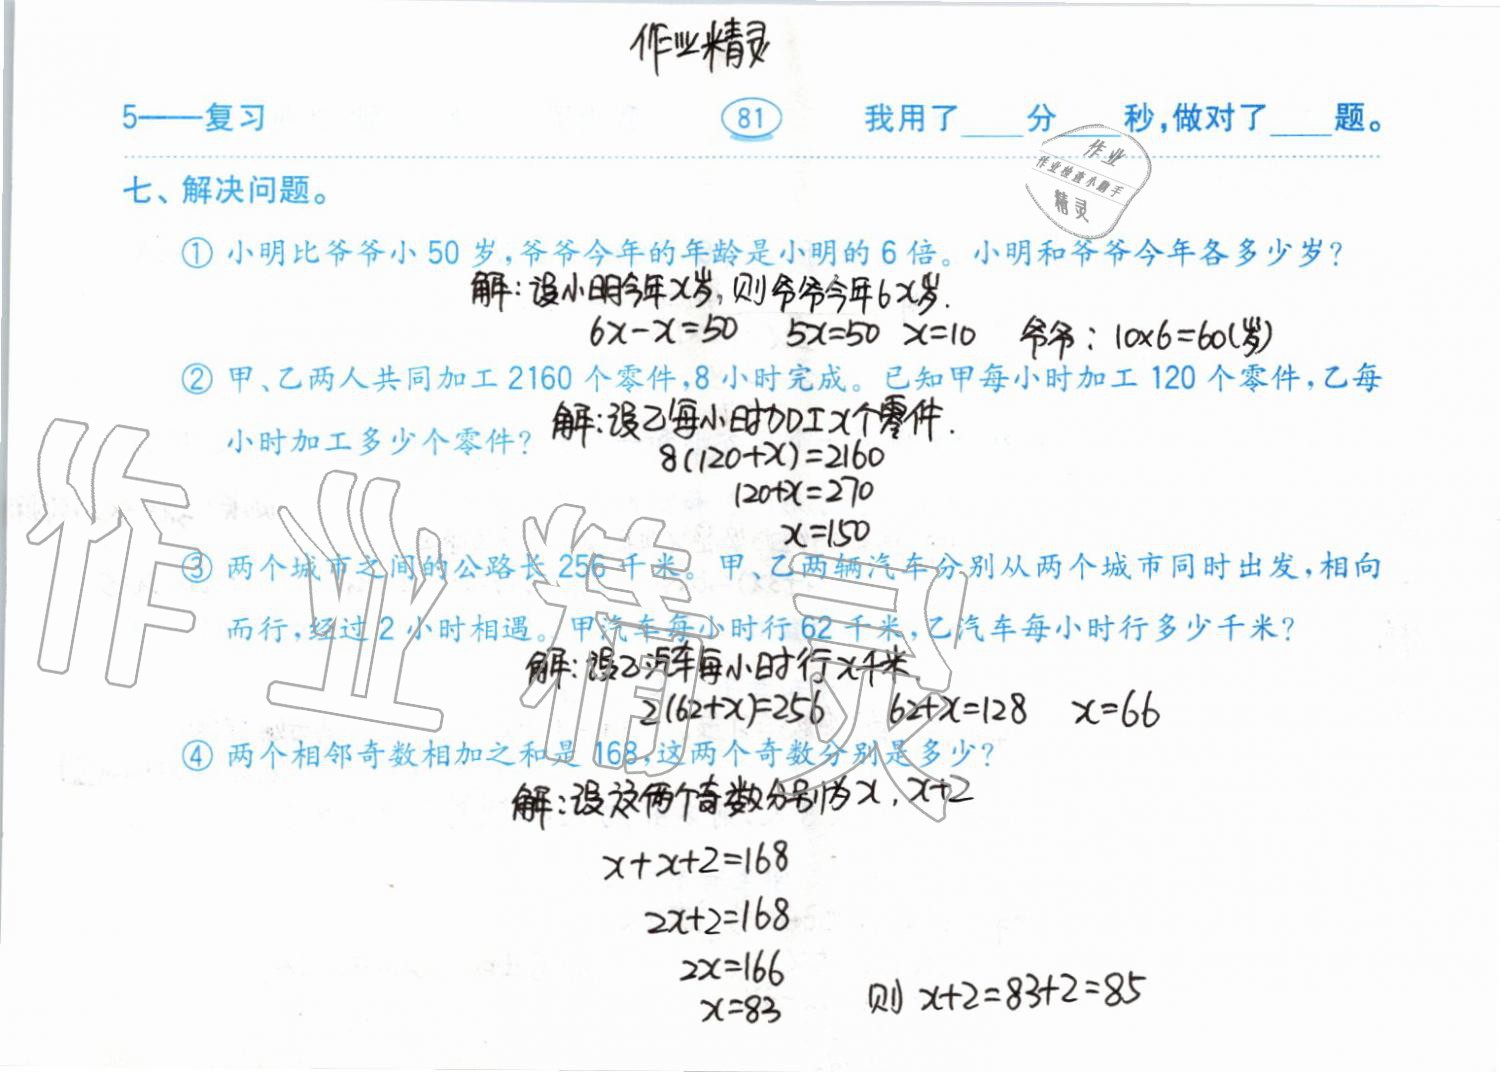 作业精灵
5——复习 81 我用了____分____秒,做对了____题。
作业
作业检查小助手
精灵
七、解决问题。
① 小明比爷爷小50岁,爷爷今年的年龄是小明的6倍。小明和爷爷今年各多少岁?
解:设小明今年x岁,则爷爷今年6x岁.
6x-x=50 5x=50 x=10 爷爷:10×6=60(岁)
② 甲、乙两人共同加工2160个零件,8小时完成。已知甲每小时加工120个零件,乙每
小时加工多少个零件?
解:设乙每小时加工x个零件.
8(120+x)=2160
120+x=270
x=150
③ 两个城市之间的公路长256千米。甲、乙两辆汽车分别从两个城市同时出发,相向
而行,经过2小时相遇。甲汽车每小时行62千米,乙汽车每小时行多少千米?
解:设乙汽车每小时行x千米.
2(62+x)=256 62+x=128 x=66
④ 两个相邻奇数相加之和是168,这两个奇数分别是多少?
解:设这两个奇数分别为x,x+2
x+x+2=168
2x+2=168
2x=166
x=83 则 x+2=83+2=85
作业精灵